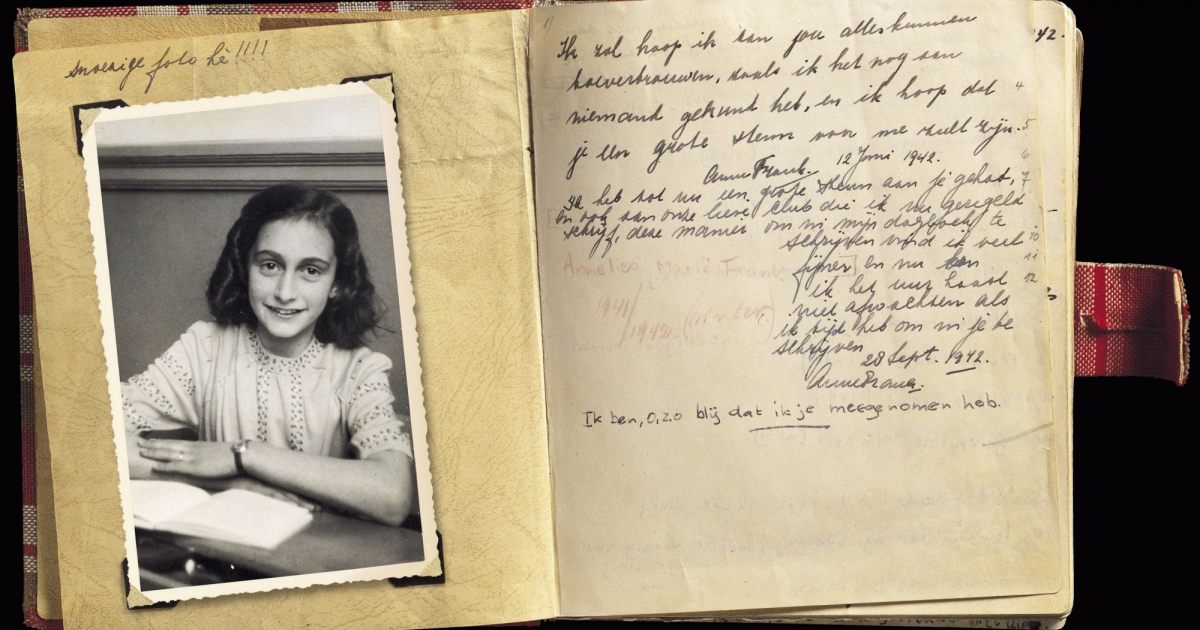 snoezige foto hè!!!!
Ik zal hoop ik aan jou alles kunnen
toevertrouwen, zoals ik het nog aan
niemand gekund heb, en ik hoop dat
je een grote steun voor me zult zijn.
Anne Frank. 12 Juni 1942.
Ik heb tot nu een grote steun aan je gehad,
en ook aan onze lieve club die ik nu geregeld
schrijf, deze manier om in mijn dagboek te
schrijven vind ik veel
fijner en nu kan
ik het uur haast
niet afwachten als
ik tijd heb om in je te
schrijven
28 Sept. 1942.
Anne Frank.
Ik ben, o, zo blij dat ik je meegenomen heb.
Annelies Marie Frank
1941/
1942
42.
4
5
6
7
10
11
12